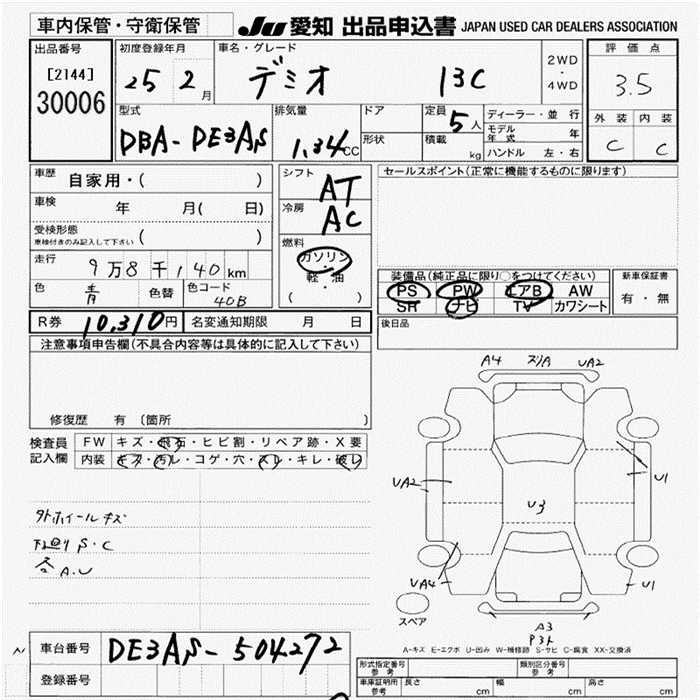 車内保管・守衛保管
JU 愛知 出品申込書 JAPAN USED CAR DEALERS ASSOCIATION
出品番号 [2144] 30006
初度登録年月 25 2 月
車名・グレード デミオ 13C
2WD・4WD
評価点 3.5
外装 内装
C C
型式 DBA-DE3AS
排気量 1.34 CC
ドア
形状
定員 5 人
積載 kg
ディーラー・並行
モデル年式 年
ハンドル 左・右
車歴 自家用・( )
車検 年 月( 日)
受検形態
車検付きのみ記入して下さい ( )
走行 9万8千140km
色 青 色替 色コード 40B
シフト AT
冷房 AC
燃料
ガソリン
軽・油
( )
セールスポイント(正常に機能するものに限ります)
装備品(純正品に限り○をつけてください)
PS PW エアB AW
SR ナビ TV カワシート
新車保証書
有・無
後日品
R券 10,310円 名変通知期限 月 日
注意事項申告欄(不具合内容等は具体的に記入して下さい)
修復歴 有 (箇所 )
検査員記入欄
FW キズ・飛石・ヒビ割・リペア跡・X要
内装 キズ・汚レ・コゲ・穴・スレ・キレ・破レ
外ホイールキズ
下廻り S・C
各 A.U
A4 スリA UA2
UA2 U3 U1
UA4 U1
スペア
A3
P3ト
A-キズ E-エクボ U-凹み W-補修跡 S-サビ C-腐食 XX-交換済
車台番号 DE3AS-504272
登録番号
形式指定番号 参考
類別区分番号 参考
車庫証明用 参考 長さ cm 幅 cm 高さ cm